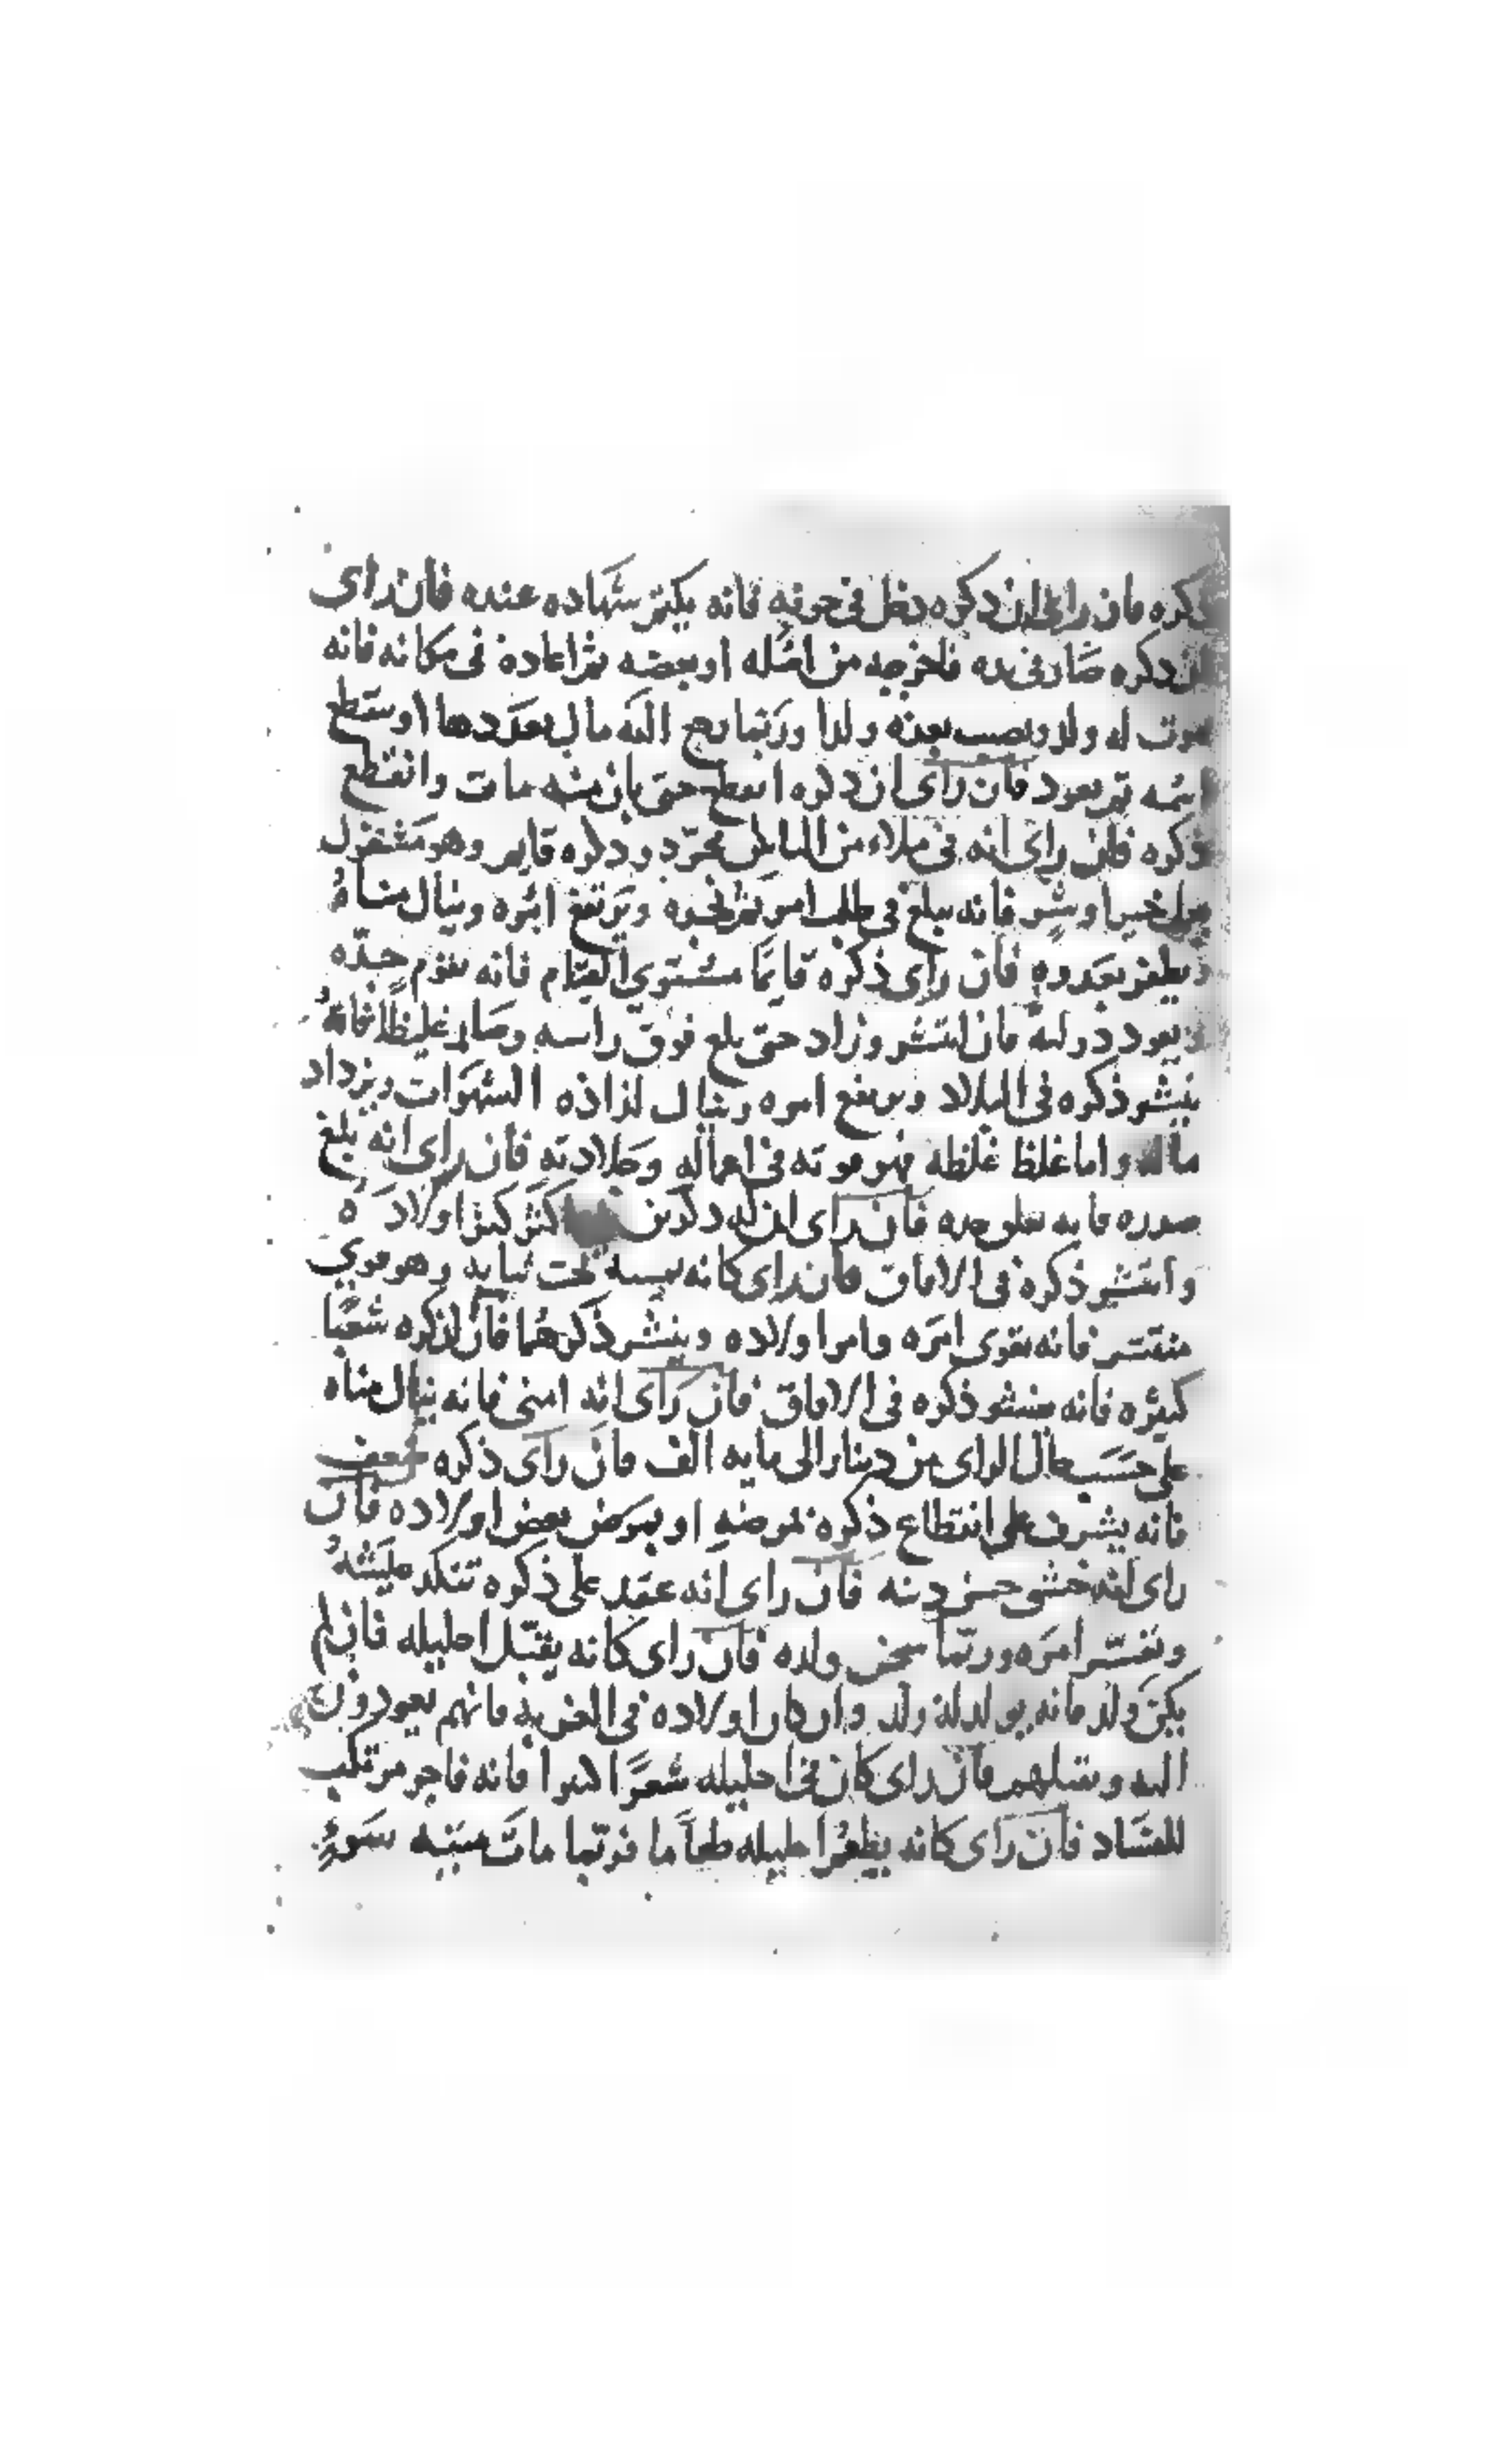 ذكره فان راى ان ذكره دخل فى جوفه فانه يكتم شهاده عنده فان راى
ان ذكره صار فى يده فاخرجه من اصله او بعضه ثم اعاده فى مكانه فانه
يموت له ولد ويصيب بعده ولدا وربما رجع اليه مال بعد دها او ينقطع
اسمه ثم يعود فان راى ان ذكره انقطع حتى بان منه مات وانقطع
ذكره فان راى انه فى ملاء من الناس مجرد وذكره قايم وهو مشغول
خير او شر فانه يبلغ فى طلب امر ويرتفع امره وينال مناهُ
ويظفر بعدوه فان راى ذكره قايمًا مستوي القيام فانه يقوم جدّه
ويعود دولته فان انتشر وزاد حتى بلغ فوق راسه وصار غليظًا فانهُ
ينشر ذكره فى البلاد ويرتفع امره وينال لذاذه الشهوات ويزداد
ماله واما غلظ غلظه فهو قوته فى اعماله وجلادته فان راى انه بلغ
صدره فانه يعلو جده فان راى ان له ذكرين كثر اولاده
وانتشر ذكره فى الافاق فان راى كانه يمسه تحت ثيابه وهو قوي
منتشر فانه يقوى امره وامر اولاده وينشر ذكرهما فان لذكره شعبًا
كثيره فانه ينتشر ذكره فى الافاق فان راى انه امنى فانه ينال مناه
على حسب حال الراى من دينار الى مايه الف فان راى ذكره ضعف
فانه يشرف على انقطاع ذكره لمرضه او يمرض بعض اولاده فان
راى انه خنثى حسن دينه فان راى انه عقد على ذكره تنكد عليشهُ
وتعسّر امره وربما سجن ولده فان راى كانه يقبّل احليله فان لم
يكن ولد فانه يولد له ولد وان كان اولاده فى الغربة فانهم يعودون
اليه ويقبلهم فان راى كان فى احليله شعرًا كثيرا فانه فاجر مرتكب
للفساد فان راى كانه يطعم احليله طعامًا فربما مات ميتة سوءٍ